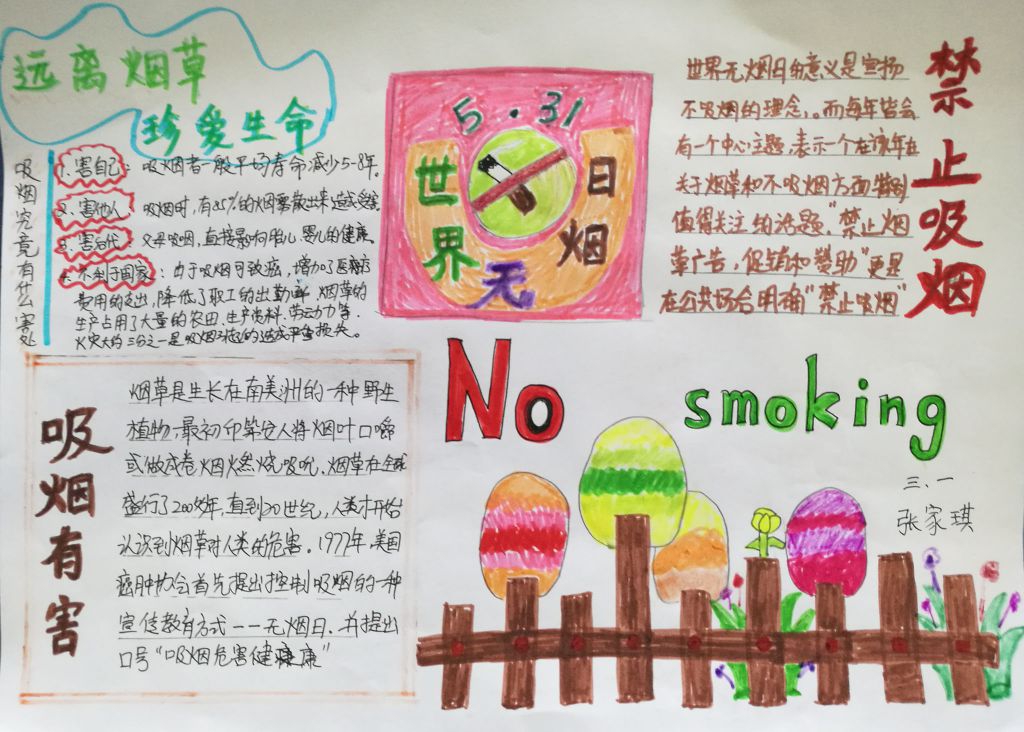 远离烟草
珍爱生命
吸烟究竟有什么害处
1. 害自己：吸烟者一般平均寿命减少5-8年。
2. 害他人 吸烟时，有85%的烟雾散出来造成受害
3. 害后代：父母吸烟，直接影响胎儿、婴儿的健康。
4. 不利于国家：由于吸烟可致癌，增加了医疗
费用的支出，降低了职工的出勤率，烟草的
生产占用了大量的农田、生产资料、劳动力等.
火灾大约三分之一是吸烟引起的造成严重损失。
5.31
世界无烟日
世界无烟日的意义是宣扬
不吸烟的理念，。而每年皆会
有一个中心主题，表示一个在该年在
关于烟草和不吸烟方面特别
值得关注的话题“禁止烟
草广告，促销和赞助”更是
在公共场合明确“禁止吸烟”
禁止吸烟
吸烟有害
烟草是生长在南美洲的一种野生
植物，最初印第安人将烟叶口嚼
或做成卷烟燃烧吸吮.烟草在全球
盛行了200多年，直到20世纪，人类才开始
认识到烟草对人类的危害。1977年，美国
癌肿协会首先提出控制吸烟的一种
宣传教育方式——无烟日.并提出
口号“吸烟危害健康”
No smoking
三、一
张家琪